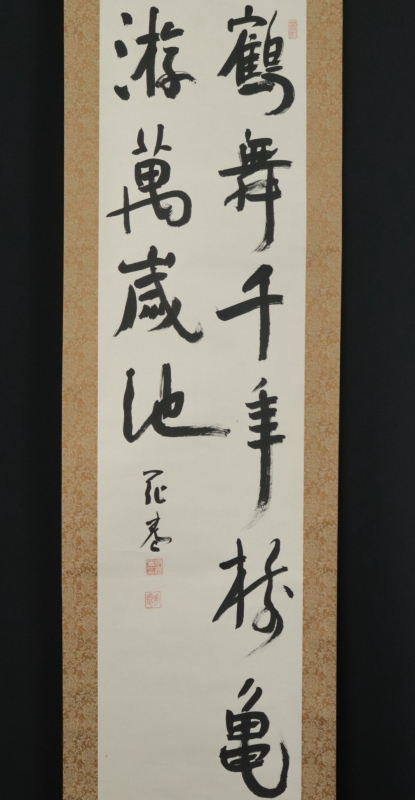 鶴舞千年樹亀
游萬歳池